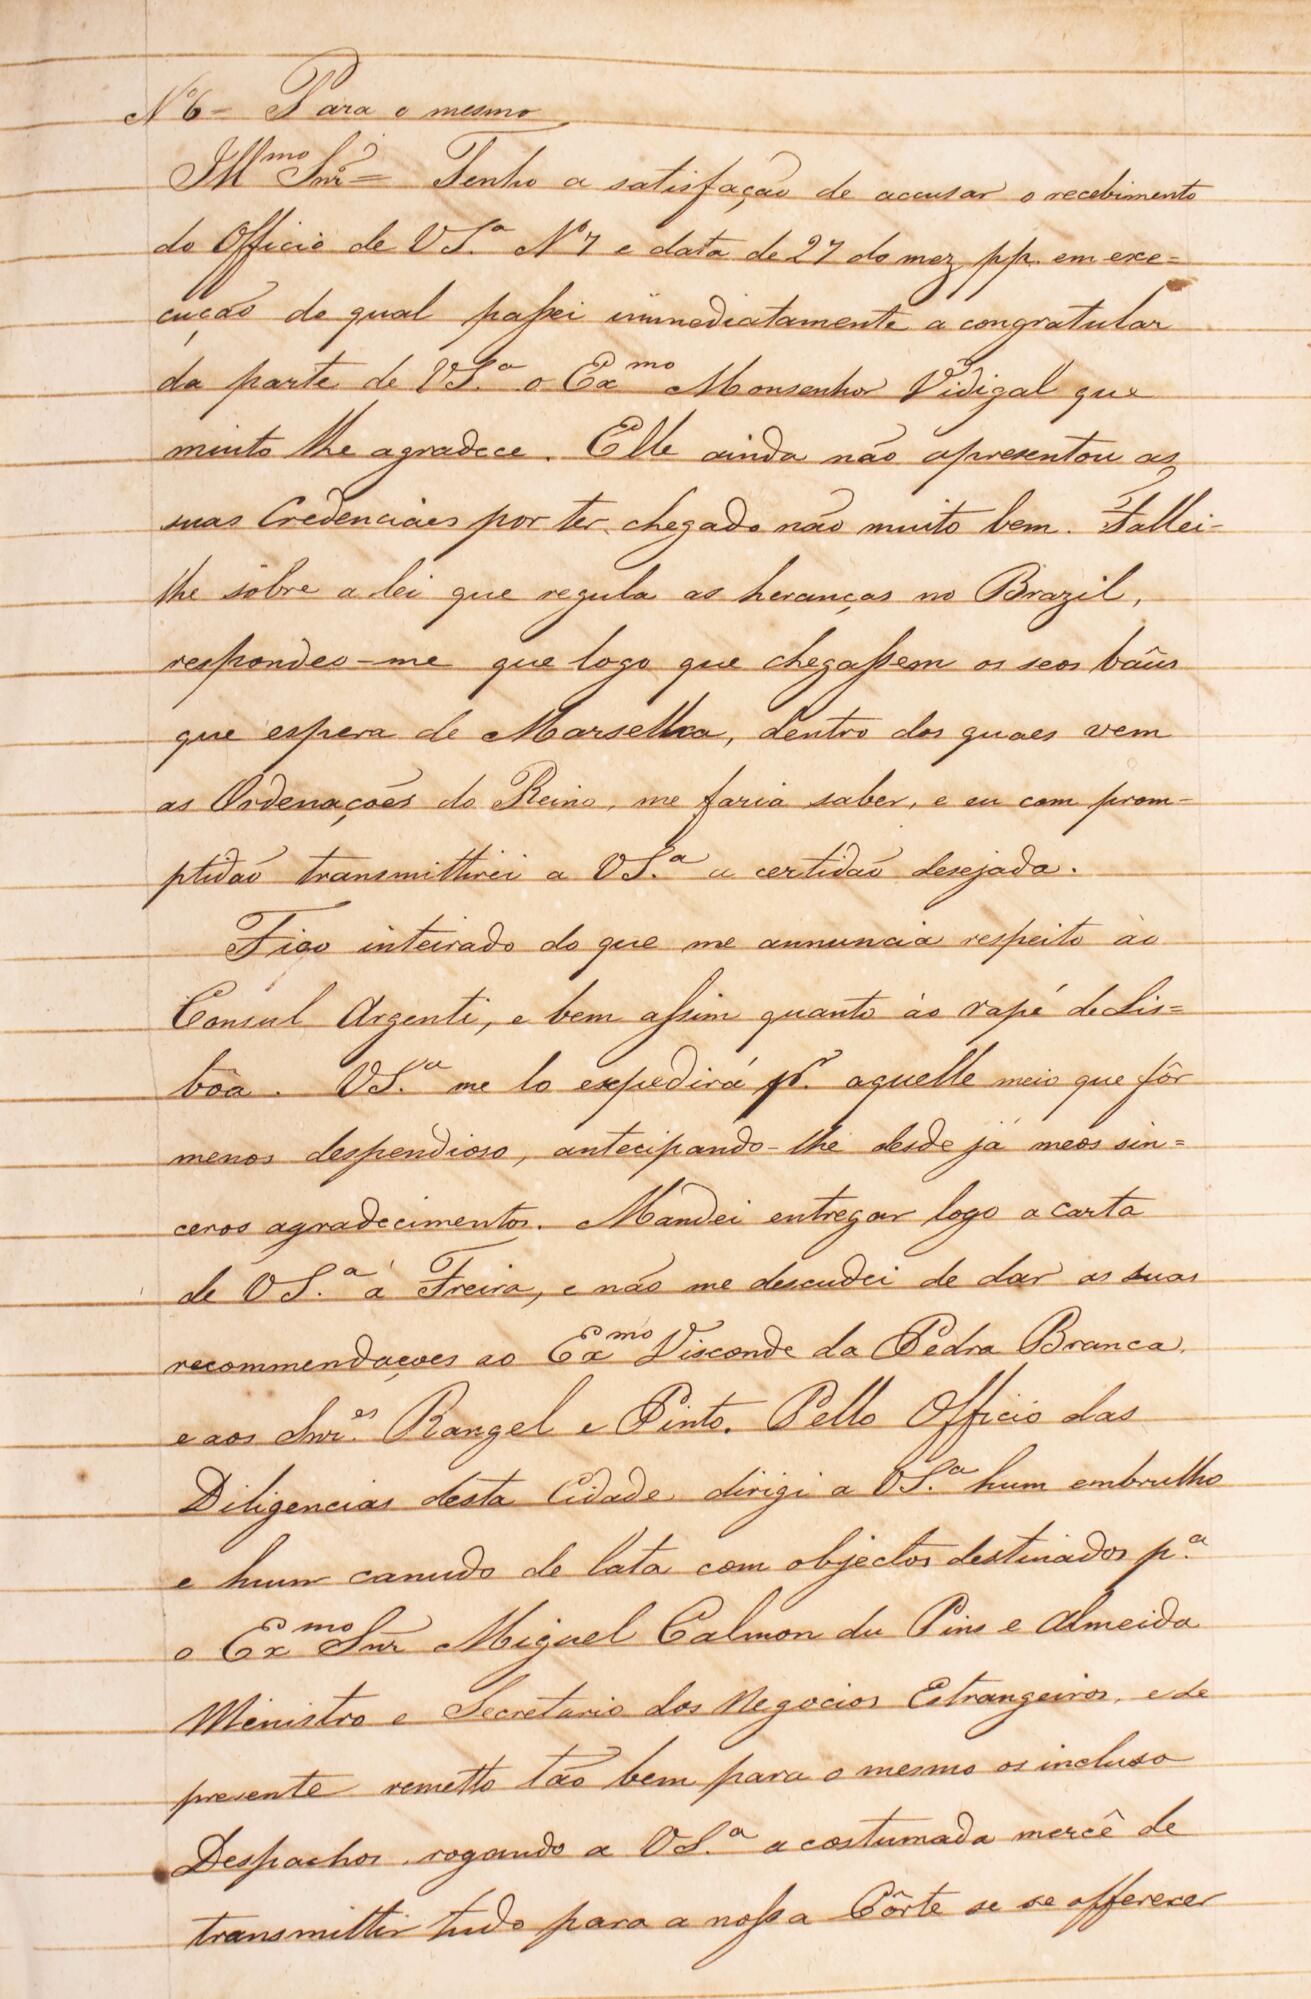 Nº 6 = Para o mesmo
Illmo Snr = Tenho a satisfação de accusar o recebimento
do Officio de VS.ª Nº 7 e data de 27 do mez pp. em exe=
cução do qual paſsei immediatamente a congratular
da parte de VS.ª o Exmo Monsenhor Vidigal que
muito lhe agradece. Elle ainda não apresentou as
suas Credenciaes por ter chegado não muito bem. Fallei-
lhe sôbre a lei que regula as heranças no Brazil,
respondeo-me que logo que chegaſsem os seos bâus
que espera de Marselha, dentro dos quaes vem
as Ordenações do Reino, me faria saber, e eu com prom-
ptidão transmittirei a VS.ª a certidão desejada.
Fico inteirado do que me annuncia respeito ào
Consul Argenti, e bem aſsim quanto ào rapé de Lis=
bôa. VS.ª me lo expedirá pr. aquelle meio que fôr
menos despendioso, antecipando-lhe desde já meos sin=
ceros agradecimentos. Mandei entregar logo a carta
de VS.ª á Freira, e não me descudei de dar as suas
recommendações ao Exmo Visconde da Pedra Branca,
e aos Snr.es Rangel e Pinto. Pello Officio das
Diligencias desta Cidade dirigi a VS.ª hum embrulho
e hum canudo de lata com objectos destinados p.ª
o Exmo Snr Miguel Calmon du Pins e Almeida
Ministro e Secretario dos Negocios Estrangeiros, e de
presente remetto tão bem para o mesmo os incluso
Despachos, rogando a VS.ª a costumada mercê de
transmittir tudo para a noſsa Côrte se se offerecer